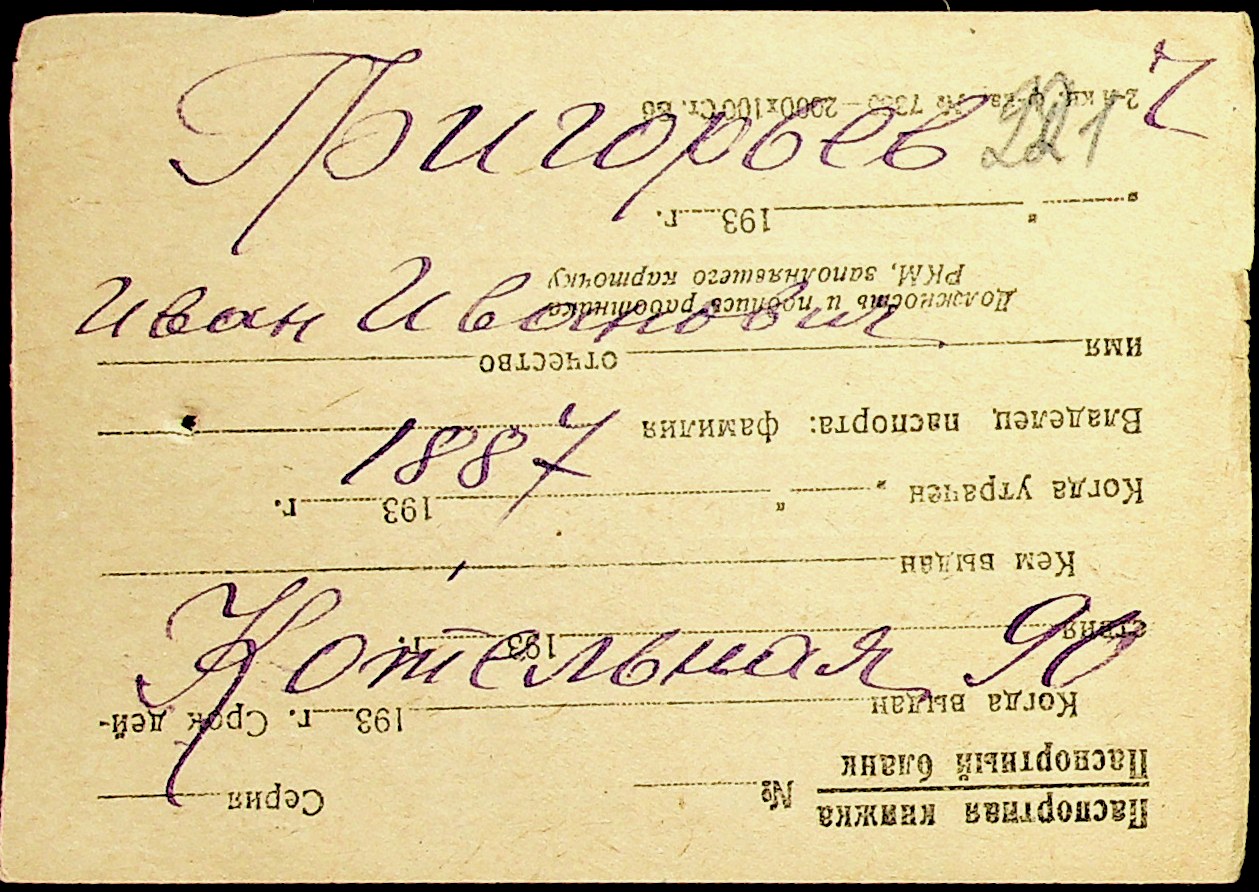 Григорьев
221 Ч
Иван Иванович
1887
Котельная 90
Паспортная книжка
Паспортный бланк
№ Серия
Когда выдан 193 г. Срок дей-
ствия 193 г.
Кем выдан
Когда утрачен " " 193 г.
Владелец паспорта: фамилия
имя отчество
Должность и подпись работника
РКМ, заполнявшего карточку
" " 193 г.